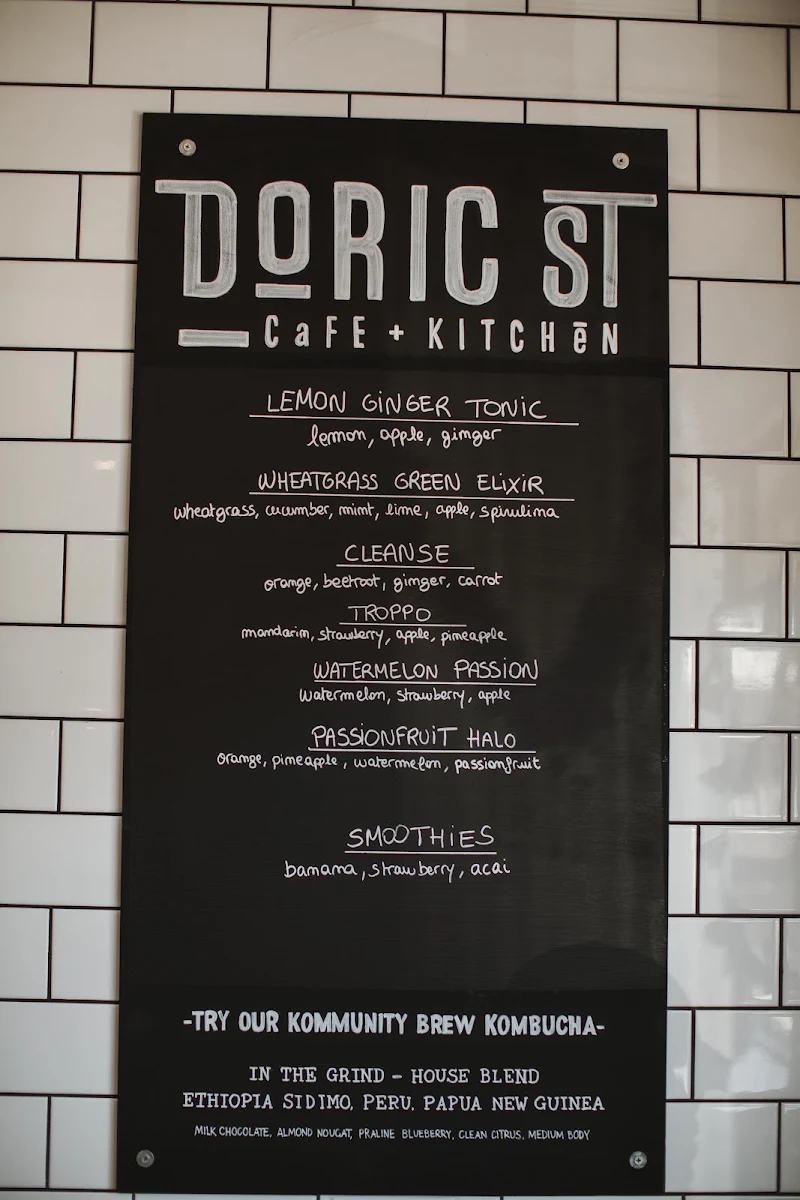 DORIC ST
CaFE + KITCHēN
LEMON GiNGER TONiC
lemon, apple, ginger
WHEATGRASS GREEN ELiXiR
wheatgrass, cucumber, mint, lime, apple, spirulina
CLEANSE
orange, beetroot, ginger, carrot
TROPPO
mandarin, strawberry, apple, pineapple
WATERMELON PASSION
Watermelon, strawberry, apple
PASSiONFRUiT HALO
orange, pineapple, watermelon, passionfruit
SMOOTHiES
banana, strawberry, acai
-TRY OUR KOMMUNITY BREW KOMBUCHA-
IN THE GRIND - HOUSE BLEND
ETHIOPIA SIDIMO, PERU, PAPUA NEW GUINEA
MILK CHOCOLATE, ALMOND NOUGAT, PRALINE BLUEBERRY, CLEAN CITRUS, MEDIUM BODY